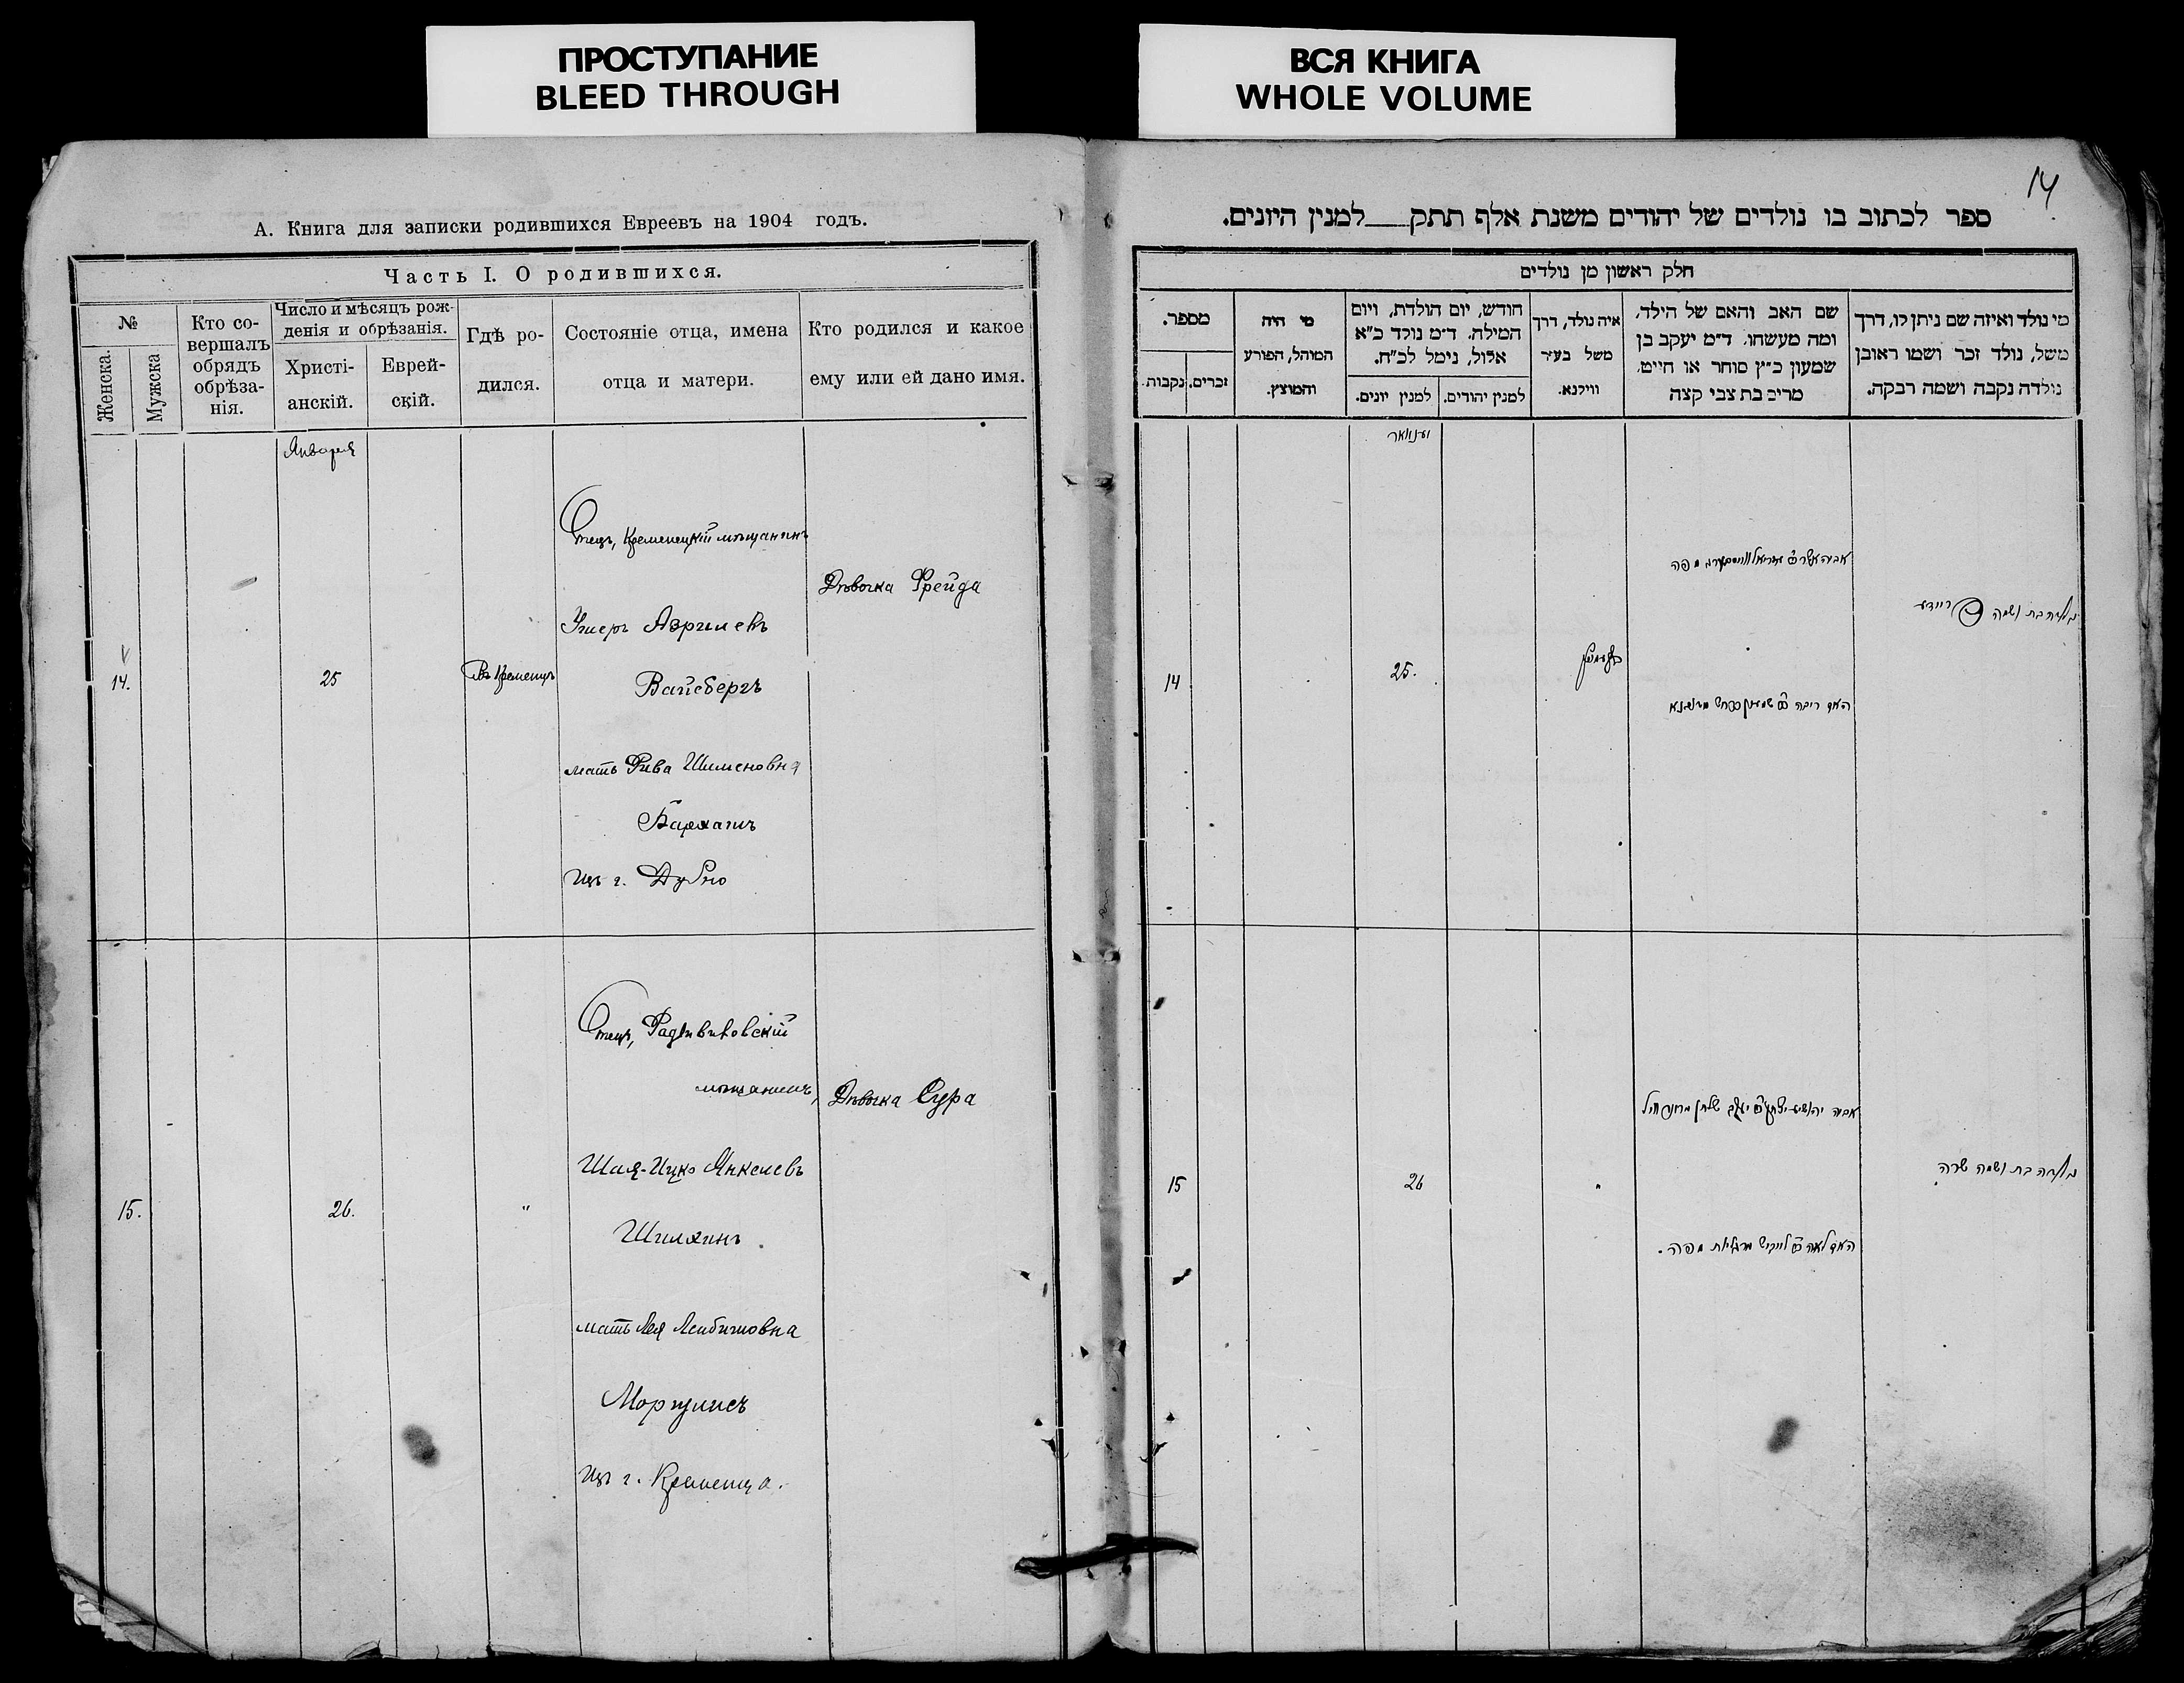 ПРОСТУПАНИЕ
BLEED THROUGH
ВСЯ КНИГА
WHOLE VOLUME
А. Книга для записки родившихся Евреевъ на 1904 годъ.
Часть I. О родившихся.
№
Женска.
Мужска
Кто со-
вершалъ
обрядъ
обрѣза-
нія.
Число и мѣсяцъ рож-
денія и обрѣзанія.
Христі-
анскій.
Еврей-
скій.
Гдѣ ро-
дился.
Состояніе отца, имена
отца и матери.
Кто родился и какое
ему или ей дано имя.
Января
14.
25
Въ Кременцѣ
Отецъ, Кременецкій мѣщанинъ
Ушеръ Азрилевъ
Вайсбергъ
мать Рива Шимоновна
Бархатъ
изъ г. Дубно
Дѣвочка Фрейда
15.
26.
"
Отецъ, Радзивиловскій
мѣщанинъ,
Шая-Ицко Янкелевъ
мать Лея Лейбишовна
Моргулисъ
изъ г. Кременца.
Дѣвочка Сура
14
ספר לכתוב בו נולדים של יהודים משנת אלף תתק__למנין היונים.
חלק ראשון מן נולדים
מי נולד ואיזה שם ניתן לו, דרך
משל, נולד זכר ושמו ראובן
נולדה נקבה ושמה רבקה.
שם האב והאם של הילד,
ומה מעשהו. ד״מ יעקב בן
שמעון כ״ץ סוחר או חייט.
מרים בת צבי קצה
איה נולד, דרך
משל בעיר
ווילנא.
חודש, יום הולדת, ויום
המילה. ד״מ נולד כ״א
אלול, נימל לכ״ח.
למנין יהודים.
למנין יונים.
מי היה
המוהל, הפורע
והמוצץ.
מספר.
זכרים.
נקבות.
יאנוואר
נולדה בת ושמה פריידא
25.
14
נולדה בת ושמה שרה
"
26
15